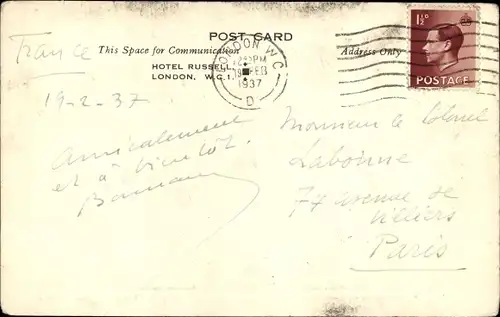 POST CARD
This Space for Communication
Address Only
HOTEL RUSSELL
LONDON, W.C.1.
LONDON W.C.
PM
19 FEB
1937
D
1½D
POSTAGE
France
19-2-37
Amicalement
et à bientôt.
Monsieur le Colonel
Labonne
77 avenue de
Villiers
Paris